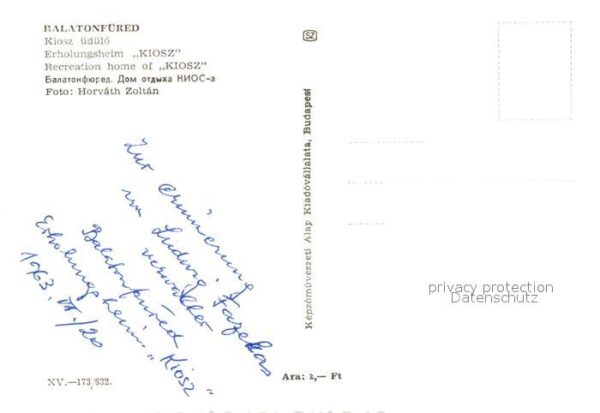 BALATONFÜRED
Kiosz üdülő
Erholungsheim „KIOSZ"
Recreation home of „KIOSZ"
Балатонфюред. Дом отдыха КИОС-а
Foto: Horváth Zoltán
SZ
Képzőművészeti Alap Kiadóvállalata, Budapest
Zur Erinnerung
von Ludwig Fazekas
verwalter
Balatonfüred
Erholungsheim „Kiosz"
1963. III./20
privacy protection
Datenschutz
XV.—173/632.
Ara: 2,— Ft